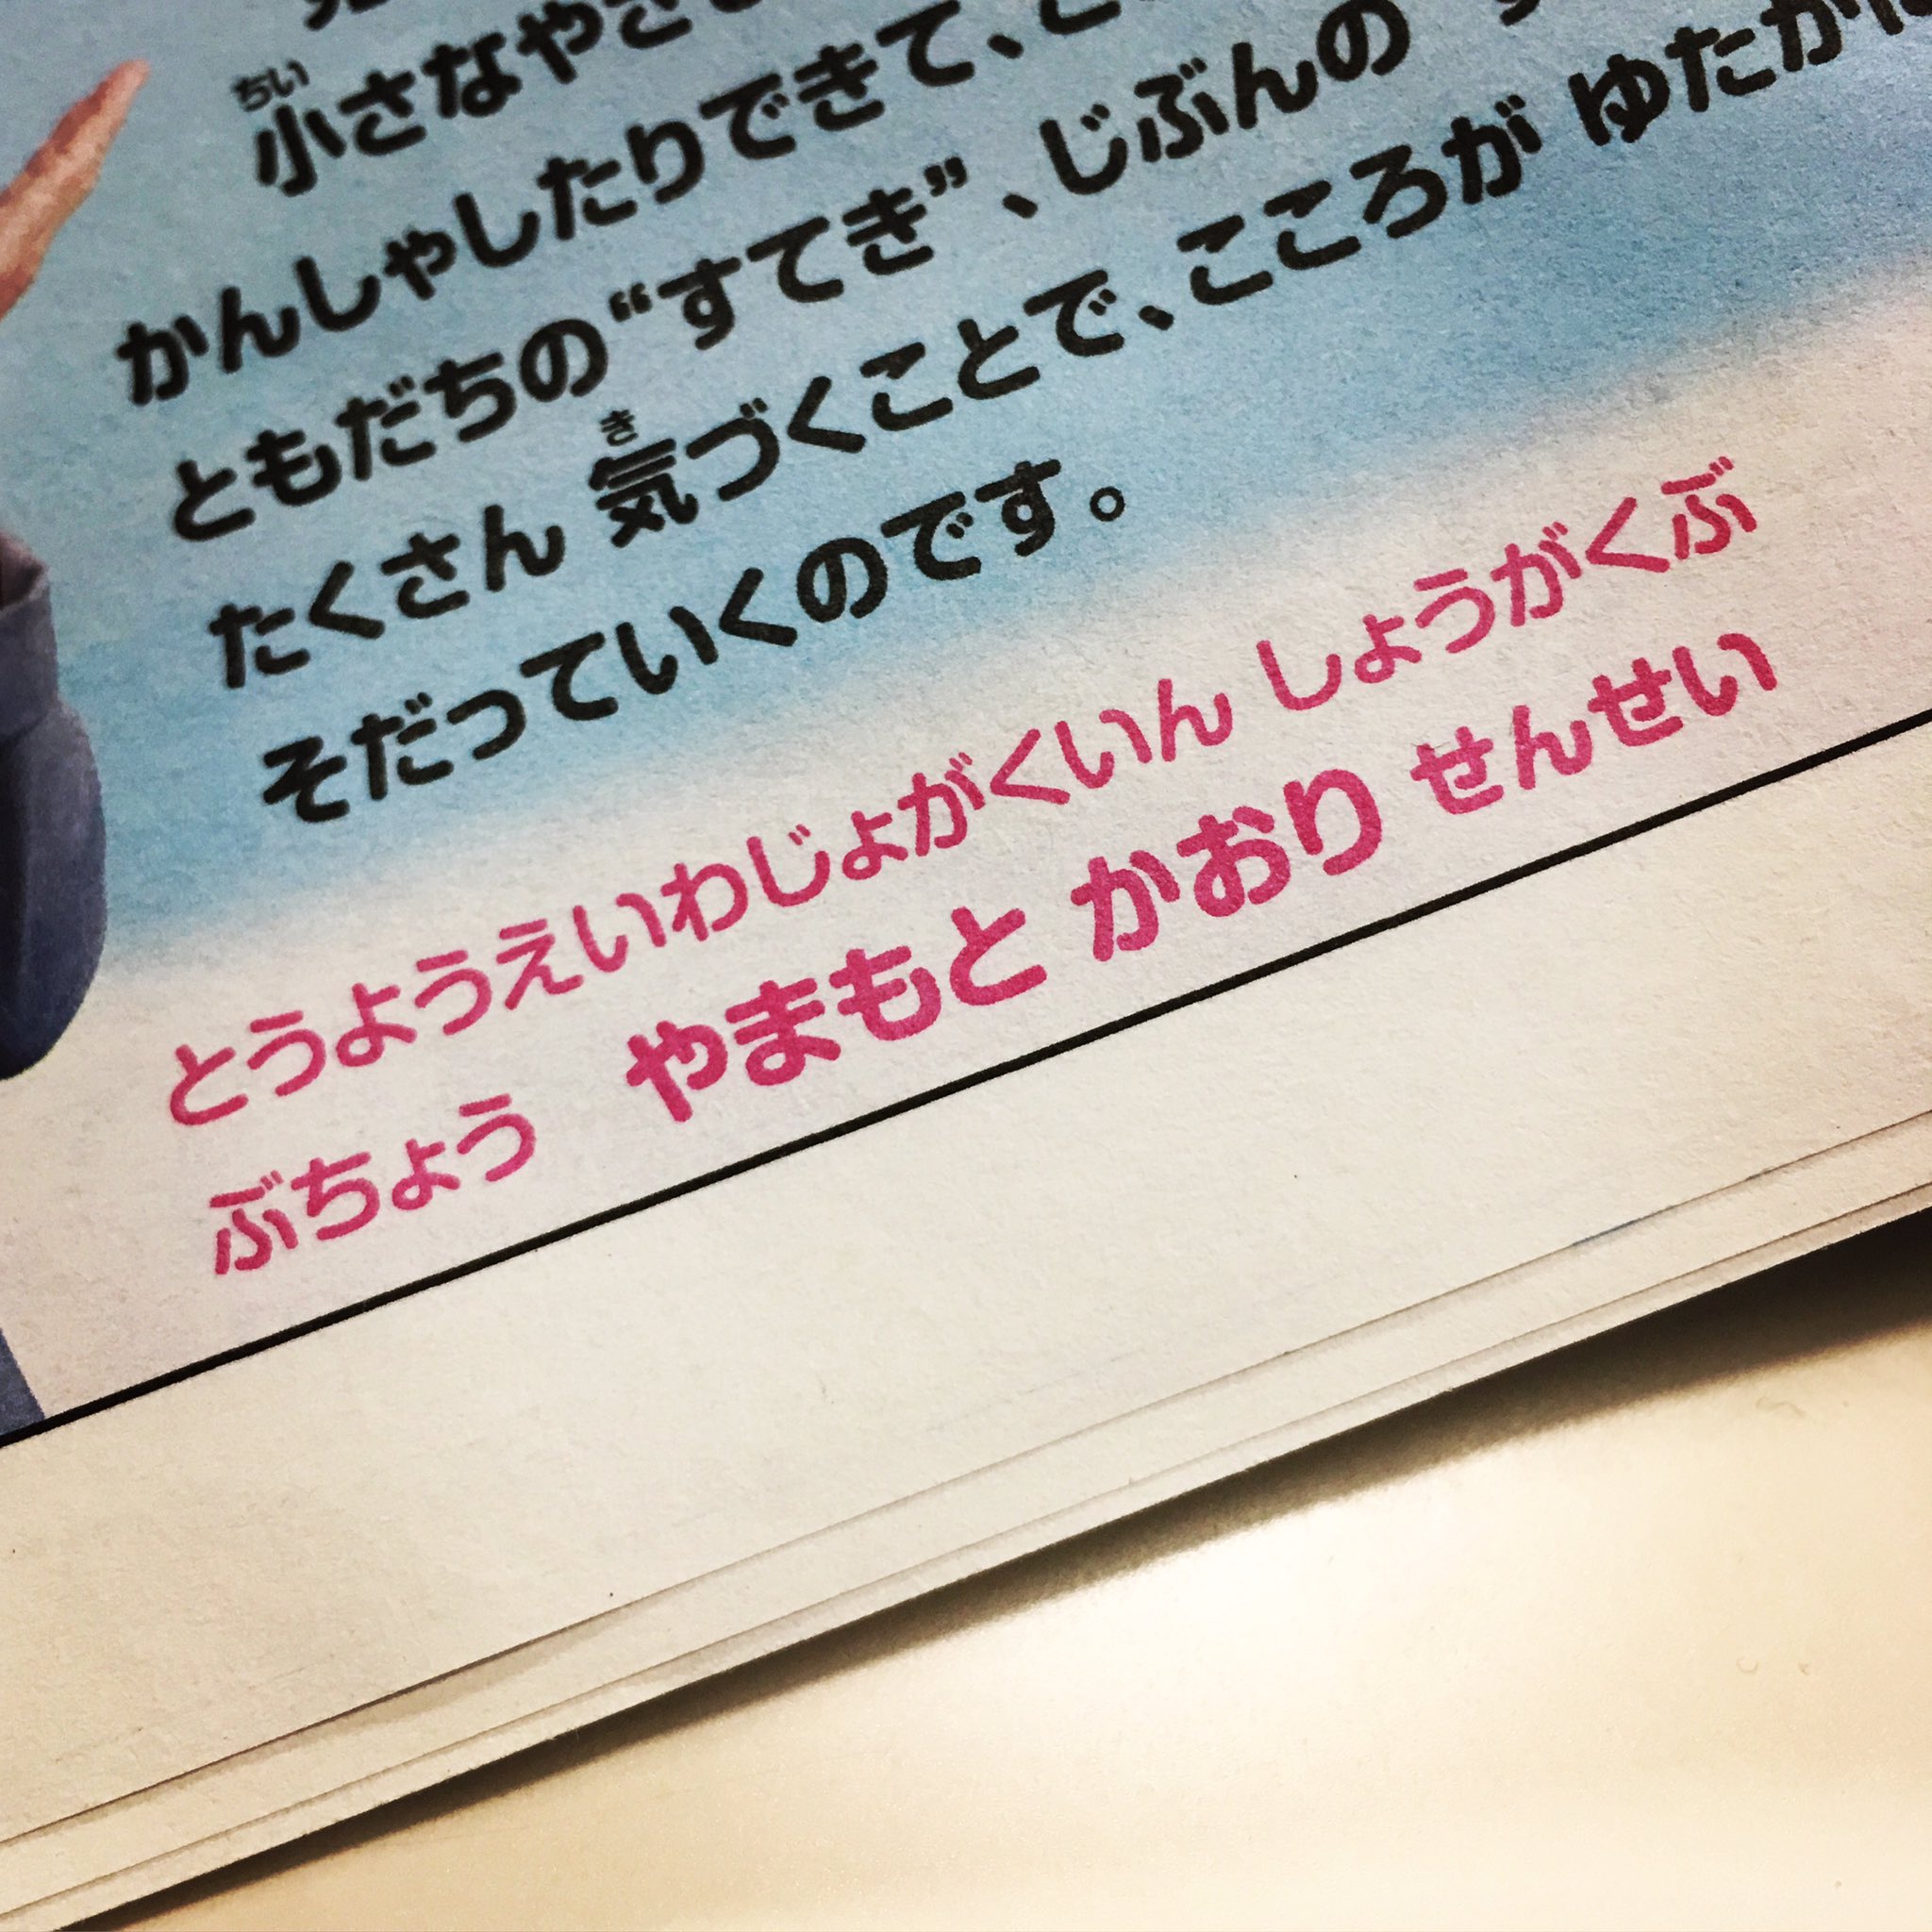 小さなや
ちい
かんしゃしたりできて、
ともだちの“すてき”、じぶんの“
たくさん 気づくことで、こころが ゆたかに
き
そだっていくのです。
とうようえいわじょがくいん しょうがくぶ
ぶちょう やまもと かおり せんせい